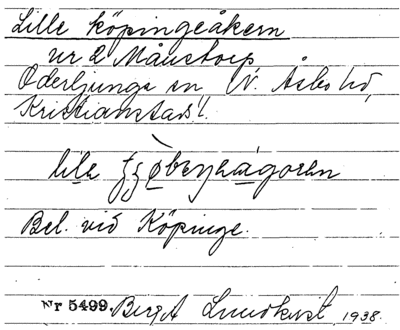 Lille köpingeåkern
ur 2 Månstorp
Oderljunga sn, N. Åsbo hd,
Kristianstads l.
lila
Bel. vid Köpinge.
Nr 5499. Bengt Lundkvist 1938.